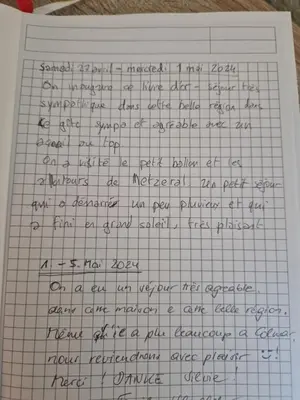 Samedi 27 avril - mercredi 1 mai 2024
On inaugure ce livre d'or - séjour très
sympathique dans cette belle région dans
ce gîte sympa et agréable avec un
au top
On a visité le petit ballon et les
alentours de Metzeral un petit séjour
qui a démarré un peu pluvieux et qui
a fini en grand soleil, très plaisant
1. - 5. Mai 2024
On a eu un séjour très agreable
dans cette maison e cette belle région.
Même il a plu beaucoup a Colmar
nous reviendrons avec plaisir !
Merci ! DANKE Silvie !